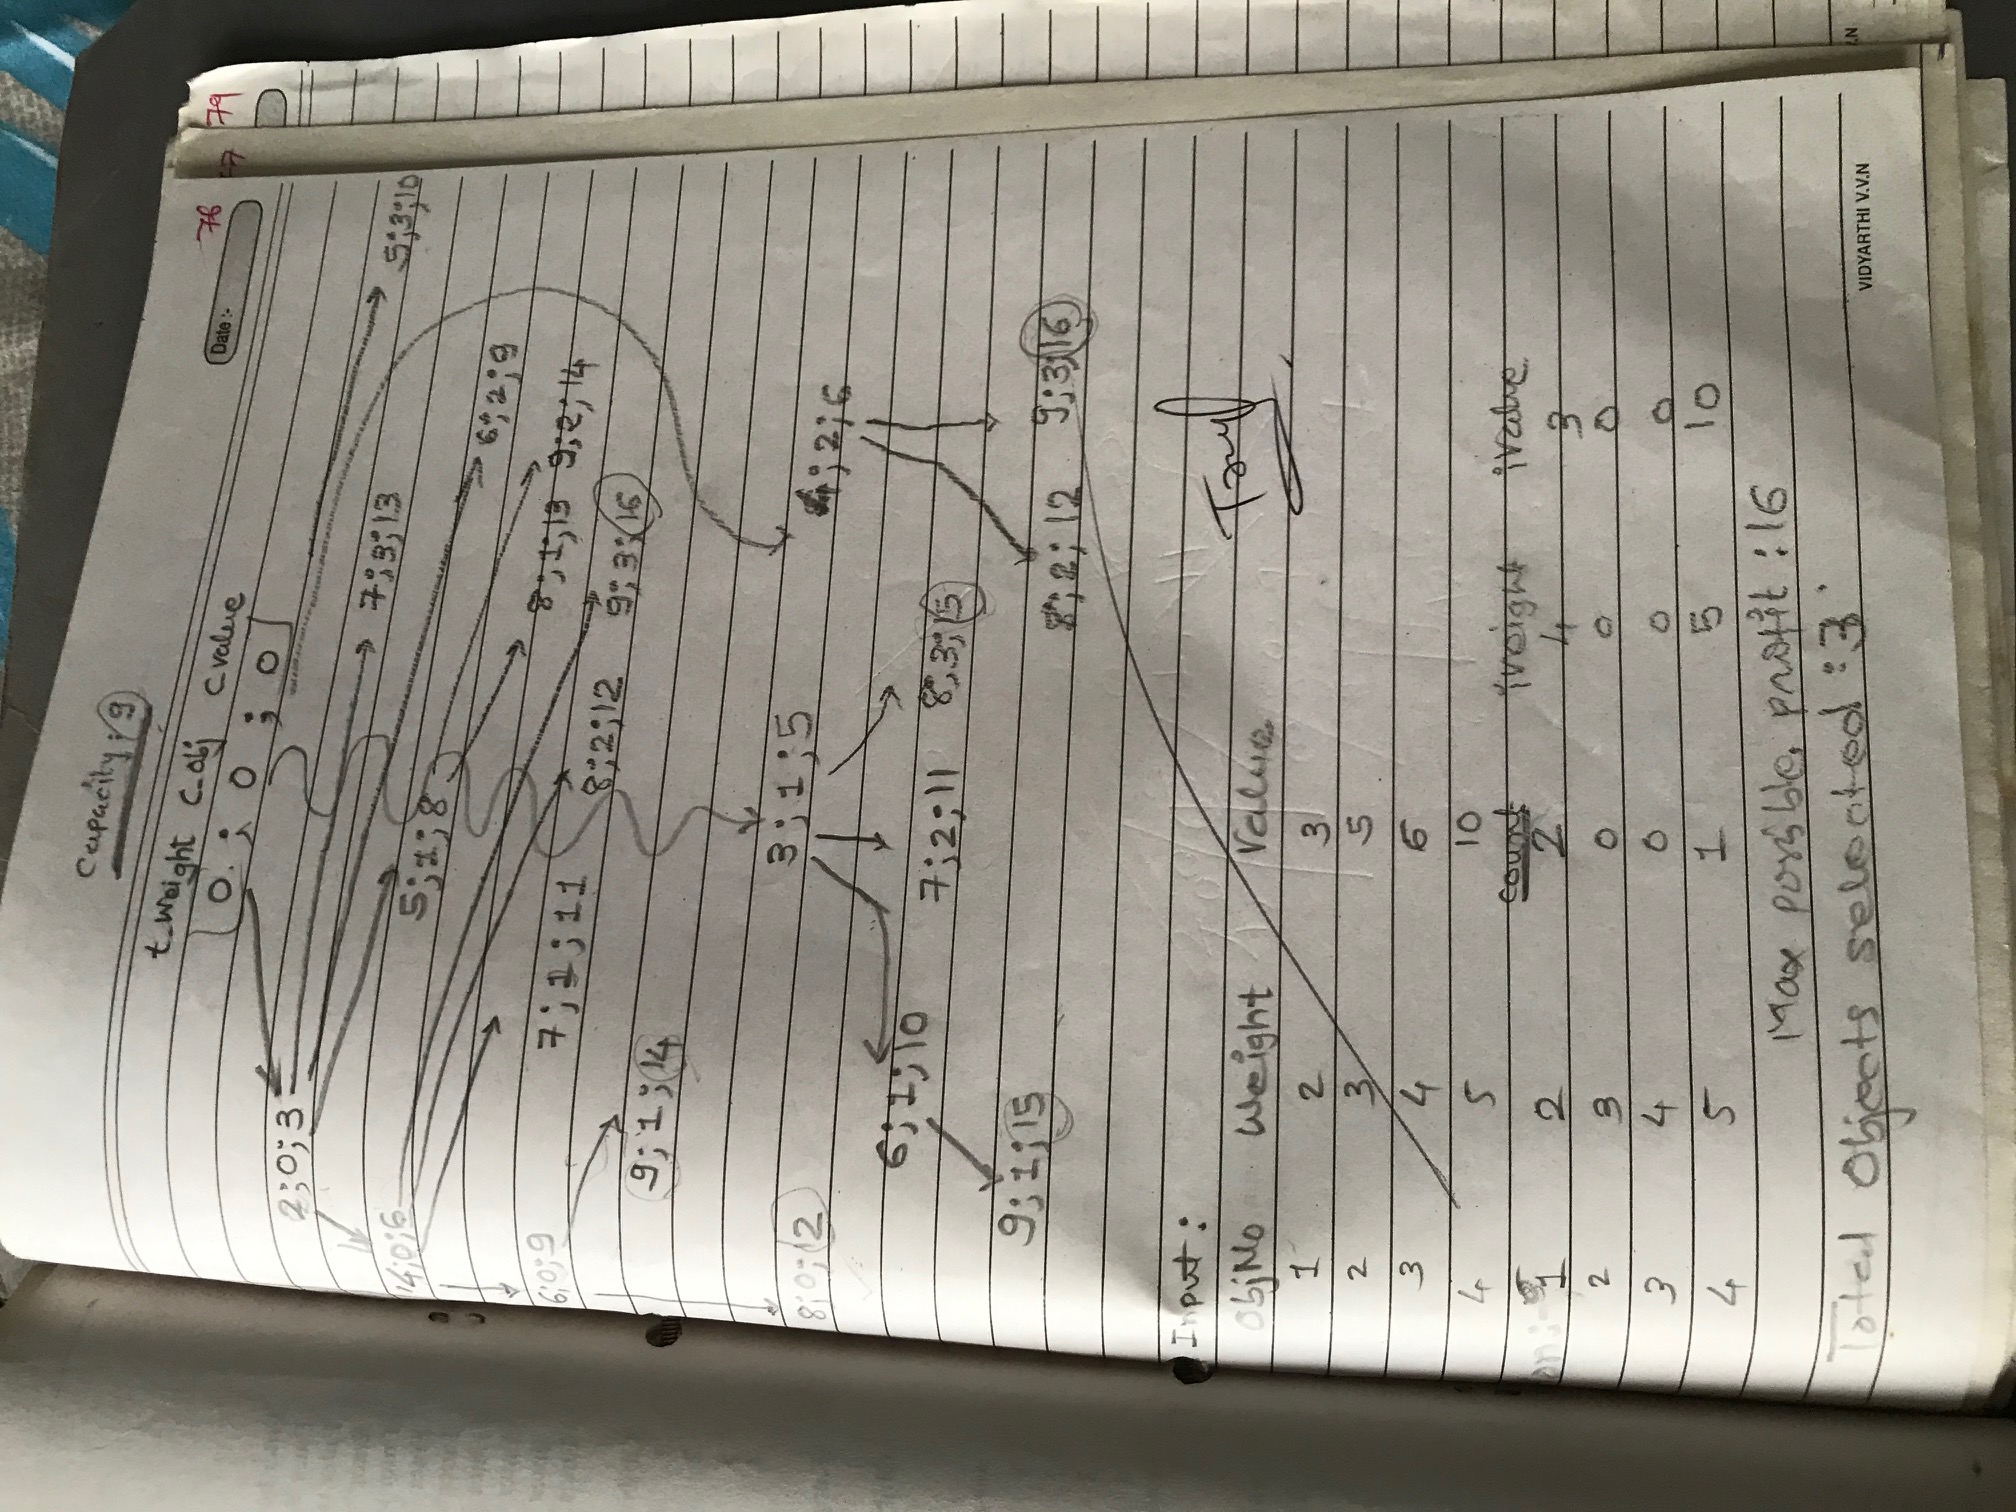 Capacity: 9
t_weight C_obj Cvalue
Date :-
76
77
79
0 ; 0 ; 0
2;0;3
7;3;13
5;3;10
4;0;6
5;1;8
6;2;9
6;0;9
7;1;11
8;2;12
8;1;13
9;2;14
9;3;16
9;1;14
3;1;5
4;2;6
8;0;12
6;1;10
7;2;11
8;3;15
9;1;15
8;2;12
9;3;16
Input :
ObjNo Weight Value
1 2 3
2 3 5
3 4 6
4 5 10
count iweight iValue
1 2 2 4 3
2 3 0 0 0
3 4 0 0 0
4 5 1 5 10
Max posible profit : 16
Total Objects selected : 3
VIDYARTHI V.V.N